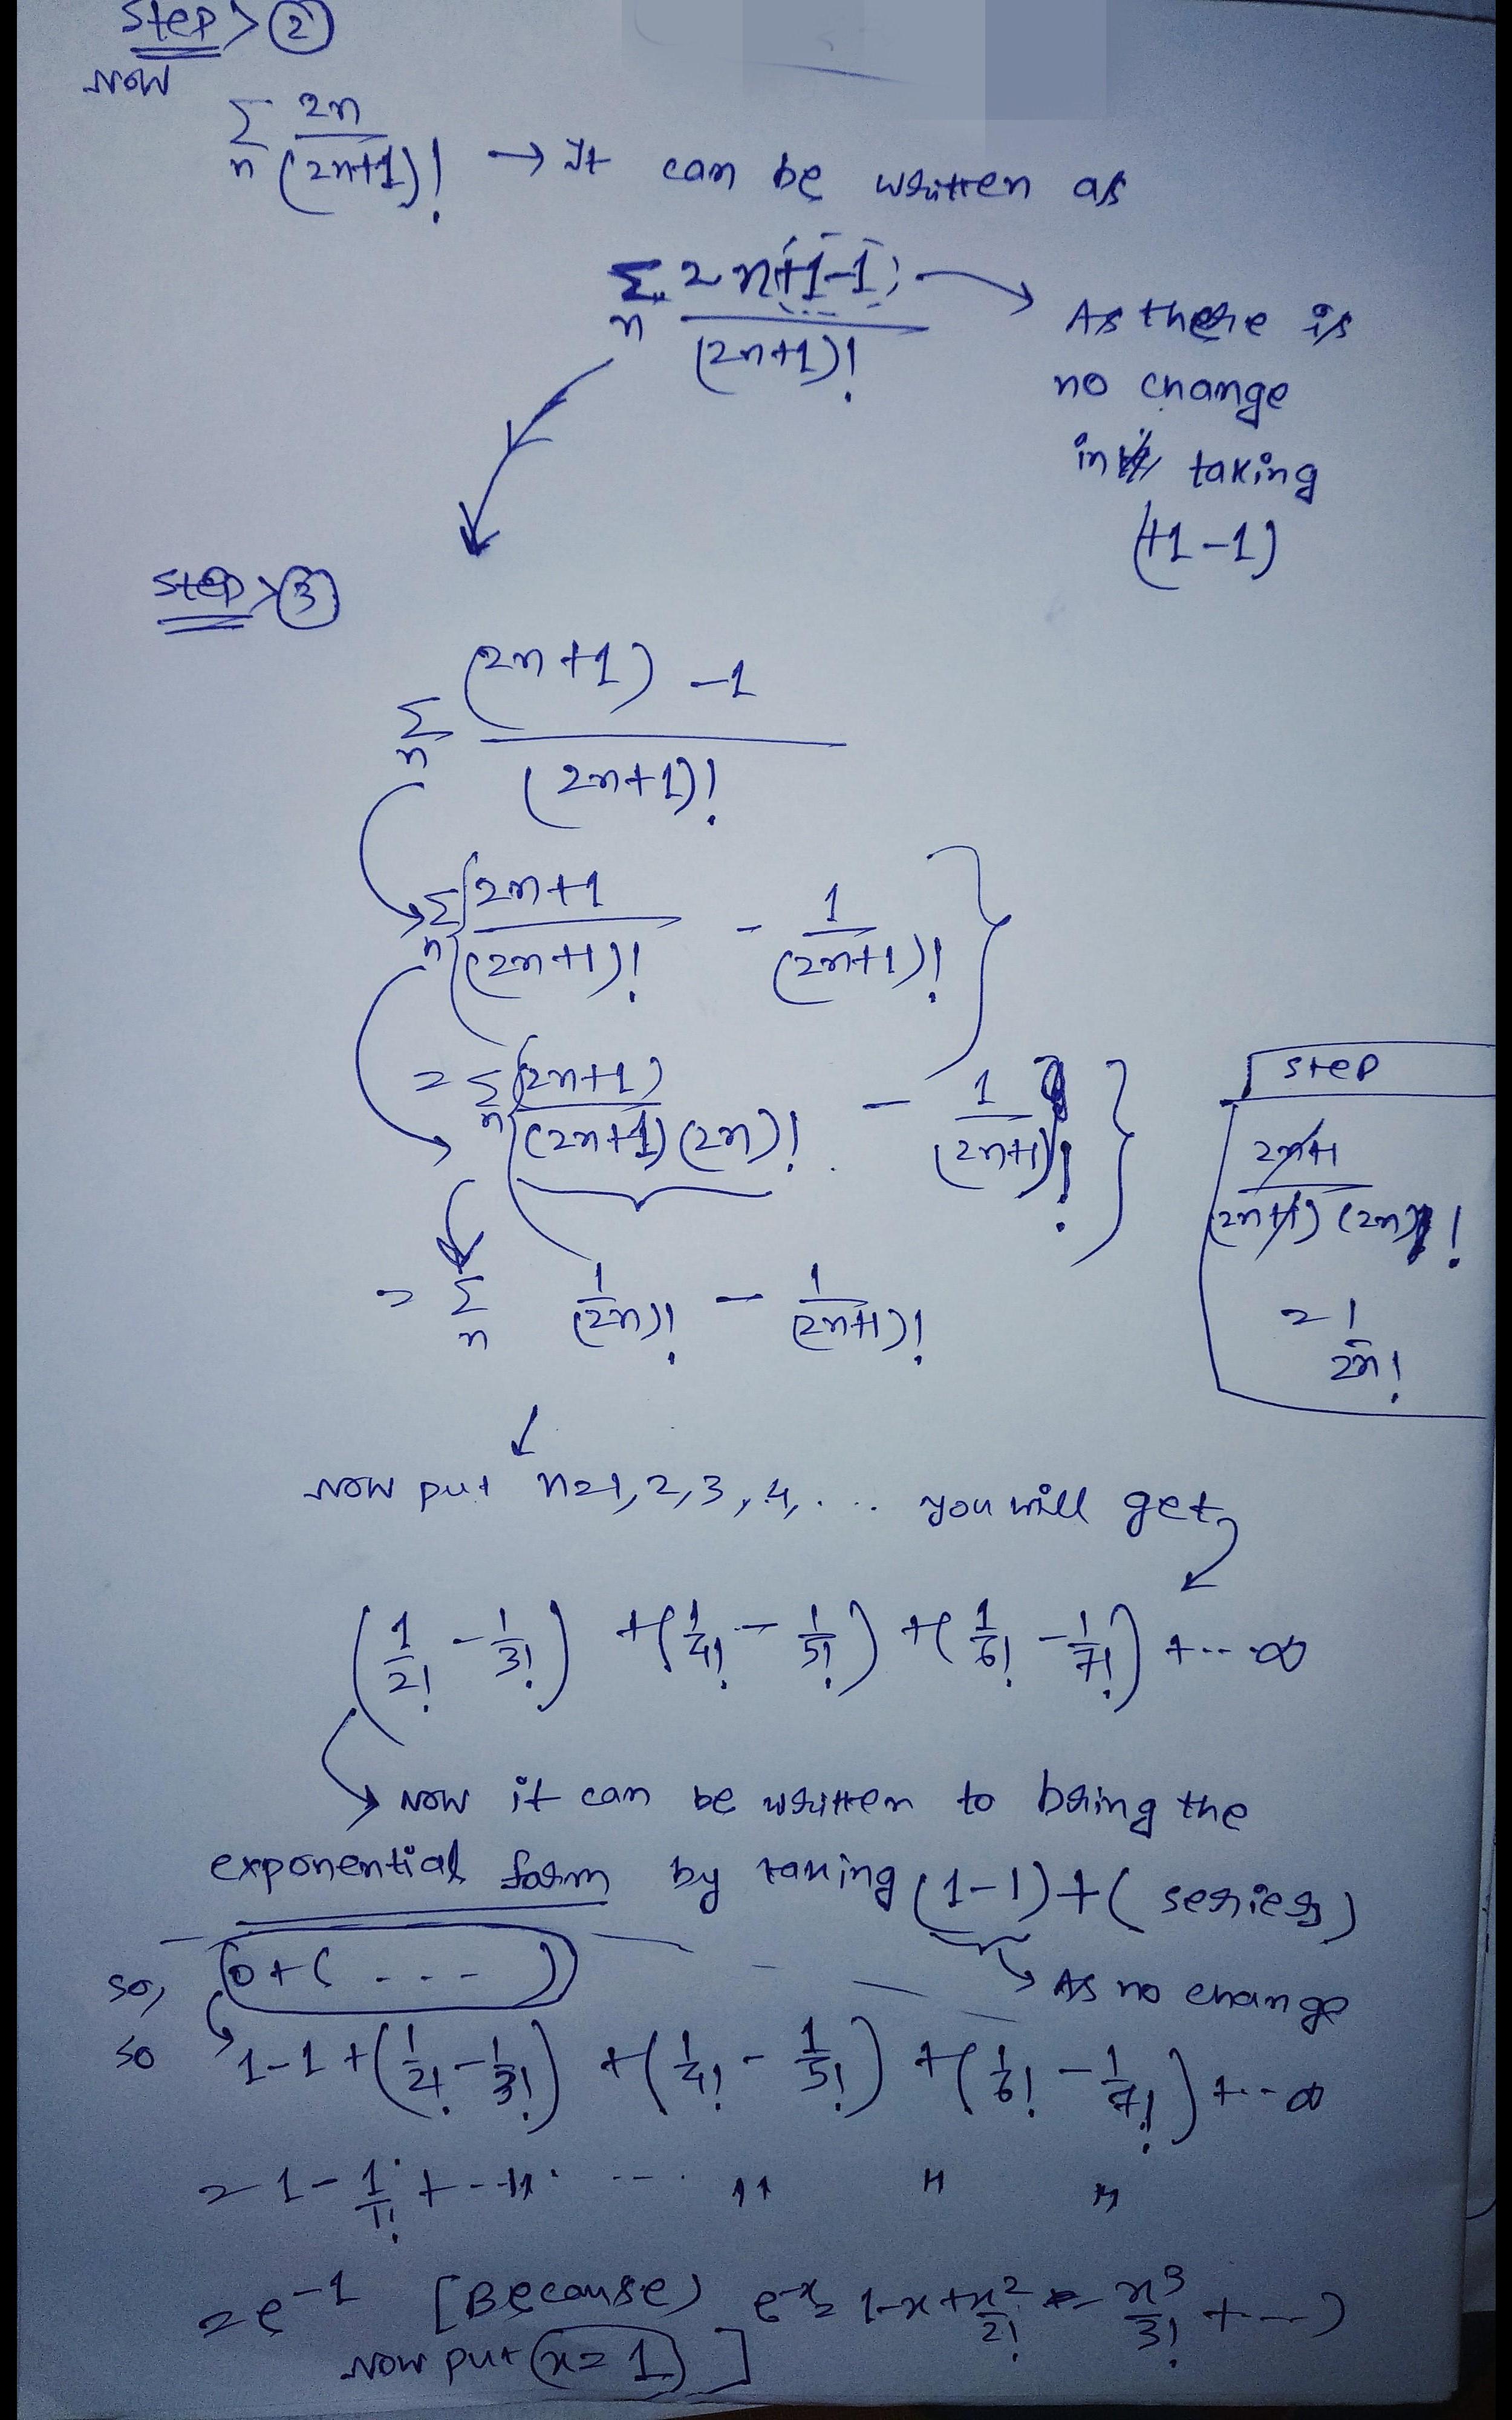 Step > ②
Now
∑n 2n/(2n+1)! → It can be written as
∑n 2n+1-1/(2n+1)! → As there is
no change
in taking
(+1-1)
Step > ③
∑n (2n+1) -1/(2n+1)!
∑n {2n+1/(2n+1)! - 1/(2n+1)!}
= ∑n {(2n+1)/(2n+1)(2n)! - 1/(2n+1)!}
step
2n+1/(2n+1)(2n)!
= 1/2n!
= ∑n 1/(2n)! - 1/(2n+1)!
↓
Now put n=1,2,3,4,... you will get,
(1/2! - 1/3!) + (1/4! - 1/5!) + (1/6! - 1/7!) +...∞
→ Now it can be written to bring the
exponential form by taking (1-1)+(series)
so, 0+(...) → As no change
so 1-1+(1/2!-1/3!) + (1/4! - 1/5!) + (1/6! - 1/7!) +..∞
= 1 - 1/1! + - - 11 . ... 11 11 11
= e^-1 [Because, e^-x = 1-x+x²/2! - x³/3! + ...)
Now put (x=1)]